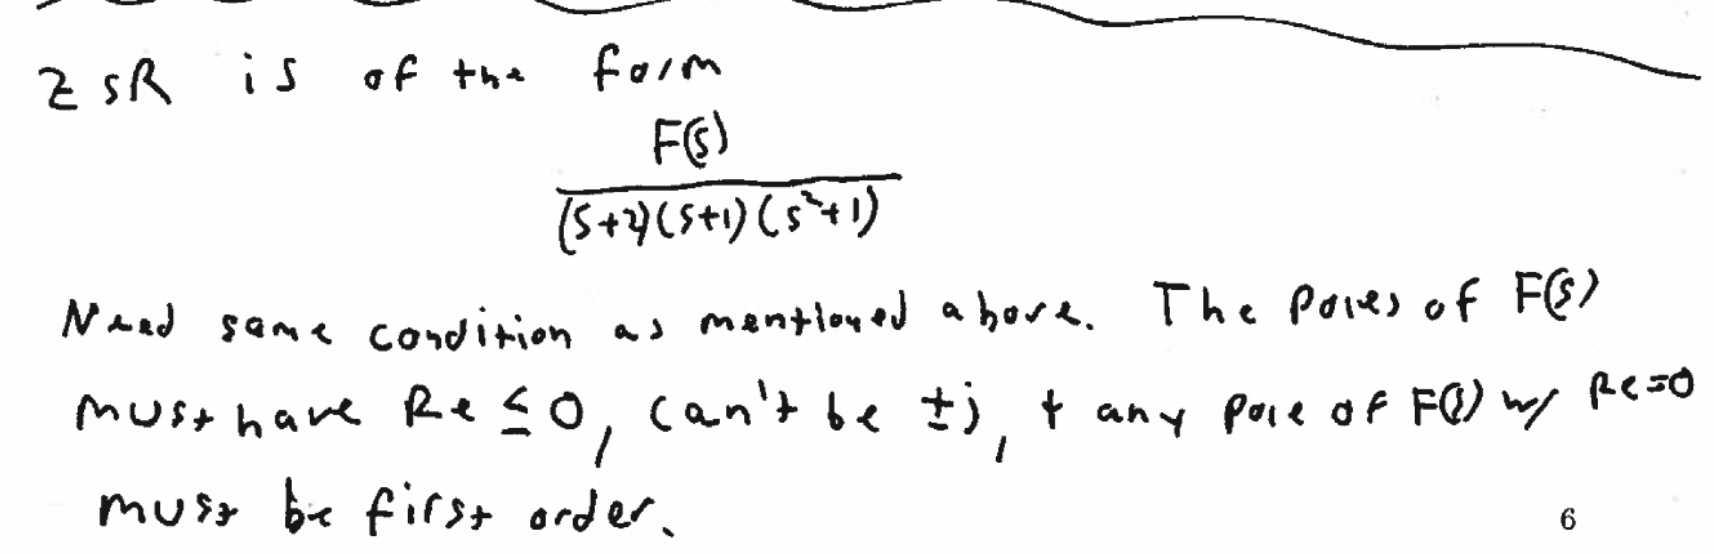 ZSR is of the form
F(s)
(s+2)(s+1)(s²+1)
Need same condition as mentioned above. The poles of F(s)
must have Re ≤ 0, can't be ±j, + any pole of F(s) w/ Re=0
must be first order.
6